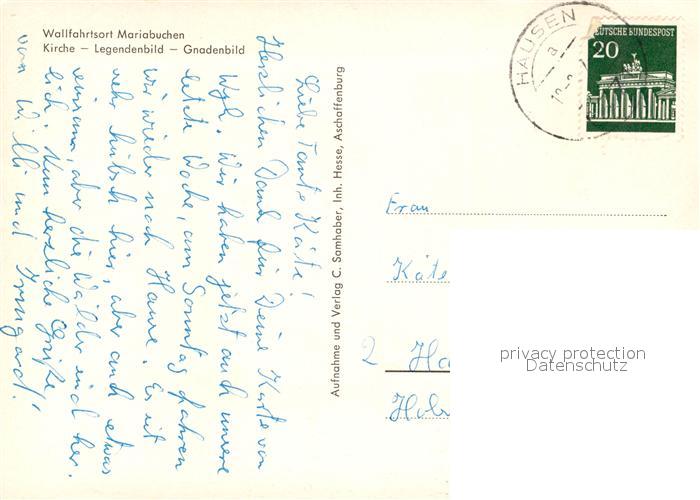 Wallfahrtsort Mariabuchen
Kirche – Legendenbild – Gnadenbild
Liebe Tante Käte!
Herzlichen Dank für Deine Karte von
Wyk. Wir haben jetzt auch unsere
letzte Woche, am Sonntag fahren
wir wieder nach Hause. Es ist
sehr hübsch hier, aber auch etwas
einsam, aber die Wälder sind herr-
lich. Nun herzliche Grüße!
von Willi und Irmgard!
Aufnahme und Verlag C. Samhaber, Inh. Hesse, Aschaffenburg
HAUSEN
a
DEUTSCHE BUNDESPOST
20
Frau
Käte
2 Ha
privacy protection
Datenschutz